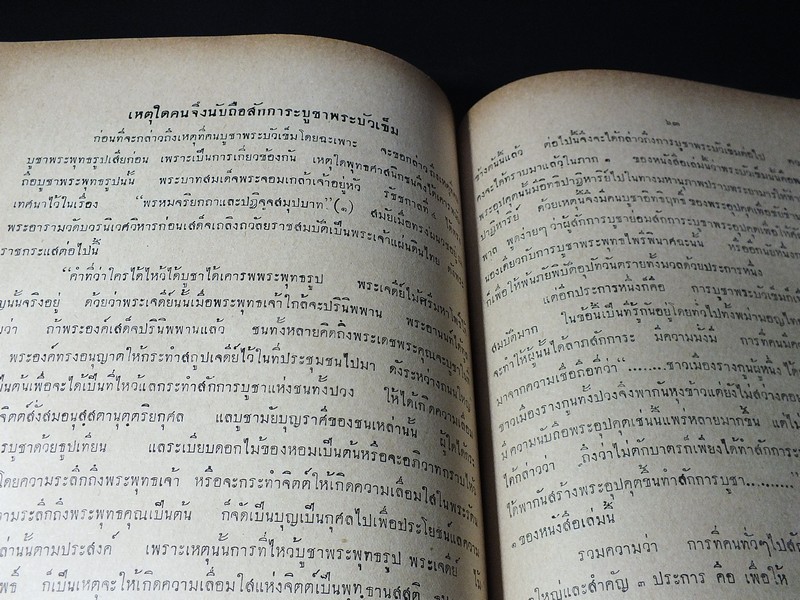 เหตุใดคนจึงนับถือสักการะบูชาพระบัวเข็ม
ก่อนที่จะกล่าวถึงเหตุที่คนบูชาพระบัวเข็มโดยฉะเพาะ จะขอกล่าวถึงเหตุ
บูชาพระพุทธรูปเสียก่อน เพราะเป็นการเกี่ยวข้องกัน เหตุใดพุทธศาสนิกชนจึงได้เคารพ
ถือบูชาพระพุทธรูปนั้น พระบาทสมเด็จพระจอมเกล้าเจ้าอยู่หัว รัชชกาลที่ ๔ ได้ทรง
เทศนาไว้ในเรื่อง "พรหมจริยกถาและปฏิจจสมุปบาท" (๑) สมัยเมื่อทรงผนวชอยู่
พระอารามวัดบวรนิเวศวิหารก่อนเสด็จเถลิงถวัลยราชสมบัติเป็นพระเจ้าแผ่นดินไทย ดังพระ
ราชกระแสต่อไปนี้
"คำที่ว่าใครได้ไหว้ได้บูชาได้เคารพพระพุทธรูป พระเจดีย์ไม้ศรีมหาโพธิ
ญนั้นจริงอยู่ ด้วยว่าพระเจดีย์นั้นเมื่อพระพุทธเจ้าใกล้จะปรินิพพาน พระอานนท์
ว่า ถ้าพระองค์เสด็จปรินิพพานแล้ว ชนทั้งหลายคิดถึงพระเดชพระคุณจะบูชา
พระองค์ทรงอนุญาตให้กระทำสถูปเจดีย์ไว้ในที่ประชุมชนไปมา ดังระหว่างถนนใหญ่
ป็นต้นเพื่อจะได้เป็นที่ไหว้แลกระทำสักการบูชาแห่งชนทั้งปวง ให้ได้เกิดความเลื่อม
จิตต์สั่งสมอนุสสตานุตตริยกุศล แลบูชามัยบุญราศีของชนเหล่านั้น ผู้ใดได้
รบูชาด้วยธูปเทียน แลระเบียบดอกไม้ของหอมเป็นต้นหรือจะอภิวาทกราบไหว้
โดยความระลึกถึงพระพุทธเจ้า หรือจะกระทำจิตต์ให้เกิดความเลื่อมใสในพระรัตน
ามระลึกถึงพระพุทธคุณเป็นต้น ก็จัดเป็นบุญเป็นกุศลไปเพื่อประโยชน์แลความ
ล่านั้นตามประสงค์ เพราะเหตุนั้นการที่ไหว้บูชาพระพุทธรูป พระเจดีย์ ไม้
พธิ์ ก็เป็นเหตุจะให้เกิดความเลื่อมใสแห่งจิตต์เป็นพุทธานุสสติ
๒๓
ร้างกันนี้แล้ว ต่อไปนี้จึงจะได้กล่าวถึงการบูชาพระบัวเข็มต่อไป
คงจะได้ทราบมาแล้วในภาค ๑ ของหนังสือเล่มนี้ว่าพระบัวเข็มนี้
พระอุปคุตนั้นมีอิทธิปาฏิหาริย์ไปในทางมหานุภาพปราบพระยามาร
ปาฏิหาริย์ ด้วยเหตุนี้จึงมีคนบูชาอิทธิฤทธิ์ของพระอุปคุตเพื่อ
พาล พูดง่าย ๆ ว่าผู้สักการบูชาย่อมสักการะบูชาพระอุปคุตเพื่อให้
นองเดียวกับการบูชาพระพุทธไพรีพินาศฉะนั้น หรืออีกนัยหนึ่ง
ก็เพื่อให้พ้นภัยพิบัติอุปัททวันตรายทั้งมวลด้วยประการหนึ่ง
แต่อีกประการหนึ่งก็คือ การบูชาพระบัวเข็มเพื่อ
สมบัติมาก ในข้อนี้เป็นที่รู้กันอยู่โดยทั่วไปทั้งพม่ามอญไทย
จะทำให้ผู้นั้นได้ลาภสักการะ มีความมั่งมี การที่คน
มาจากความเชื่อถือที่ว่า "........ชาวเมืองร่างกุ้งผู้หนึ่ง ได้
ชาวเมืองร่างกุ้งทั้งปวงจึงพากันหุงข้าวแต่ยังไม่สว่าง
มีความนับถือพระอุปคุตเช่นนี้แพร่หลายมากขึ้น แต่
ได้กล่าวว่า ถึงว่าไม่ตักบาตรก็เพียงได้ทำสักการะ
ได้พากันสร้างพระอุปคุตขึ้นทำสักการบูชา........"
๑ ของหนังสือเล่มนี้
รวมความว่า การที่คนทั่ว ๆ ไป
ใหญ่และสำคัญ ๓ ประการ คือ เพื่อให้